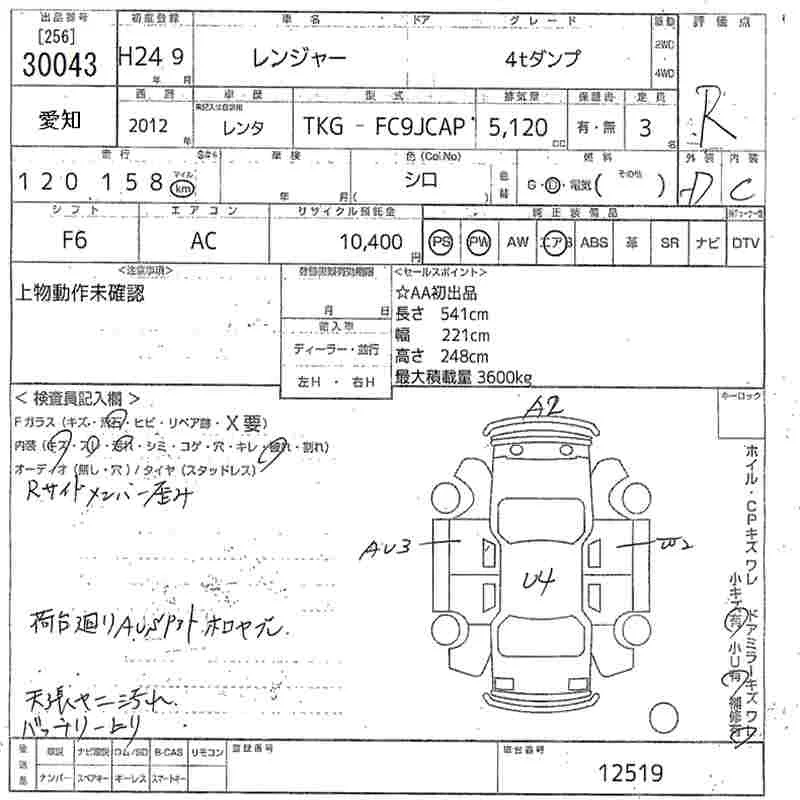 出品番号 初度登録 車名 ドア グレード 駆動 評価点
[256]
30043 H24 9 レンジャー 4tダンプ 2WD
年 月 4WD
愛知 西暦 車歴 型式 排気量 保証書 定員
2012 年 レンタ TKG - FC9JCAP 5,120 cc 有・無 3 名 R
走行 車検 色(Col.No) 燃料 外装 内装
120158 マイル km 年 月 シロ G・D・電気( その他 ) D C
シフト エアコン リサイクル預託金 純正装備品
F6 AC 10,400 円 PS PW AW エアB ABS 革 SR ナビ DTV
<注意事項> <セールスポイント>
上物動作未確認 ☆AA初出品
月 日 長さ 541cm
輸入車 幅 221cm
ディーラー・並行 高さ 248cm
左H・右H 最大積載量 3600kg
<検査員記入欄> キーロック
Fガラス(キズ・飛石・ヒビ・リペア跡・X要)
内装(キズ・スレ・汚れ・シミ・コゲ・穴・キレ・破れ・割れ)
オーディオ(無し・穴)/タイヤ(スタッドレス)
Rサイドメンバー歪み
A2
AU3
W2
U4
荷台廻りAUSサビホロヤブレ
天張ヤニ汚れ
バッテリー上り
ホイル・CPキズワレ ドアミラーキズワレ
小キズ有 小U有 補修有
後送品 取説 ナビ取説 ロム/SD B-CAS リモコン 登録番号 車台番号
ナンバー スペアキー キーレス スマートキー 12519